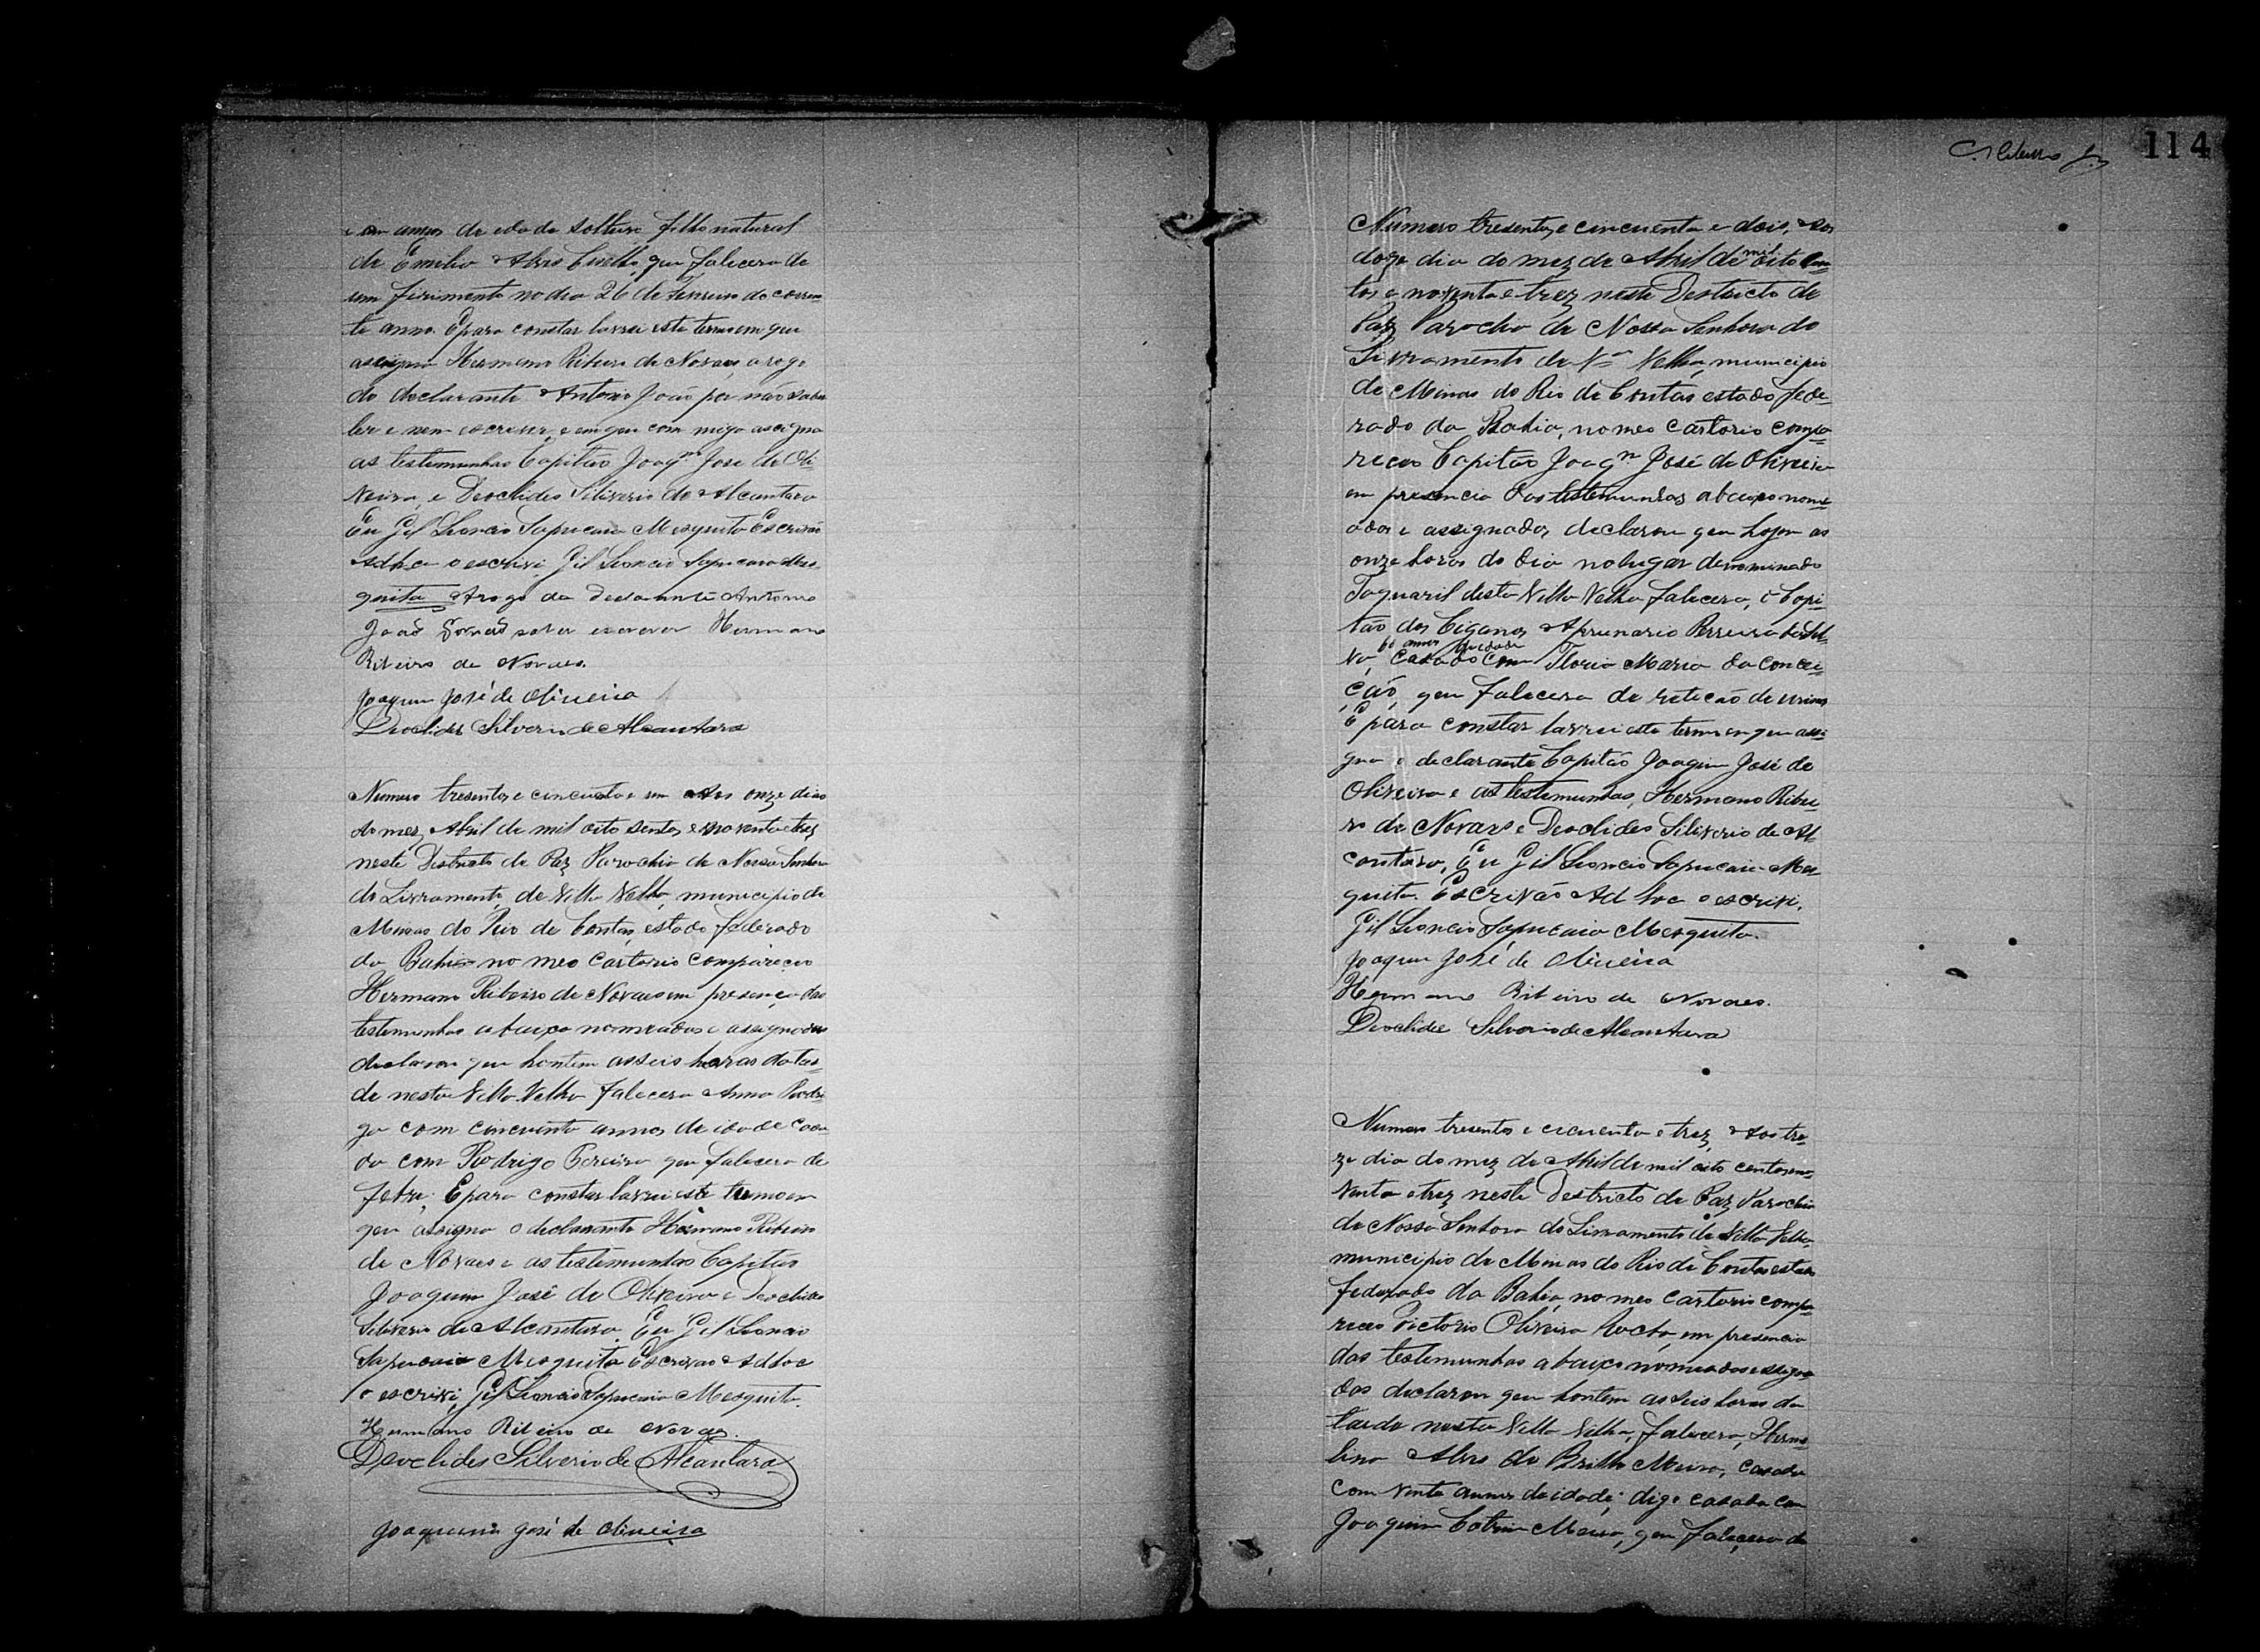 e um annos de edade solteiro filho natural
de Emilia Alves Coelho, que falecera de
um firimento no dia 26 de Fevereiro do corren-
te anno. E para constar lavrei este termo em que
assigna Hermano Ribeiro de Novaes a rogo
do declarante Antonio João por não saber
ler e nem escrever, e em que com migo assigna
as testemunhas Capitão Joaqm José de Oli-
veira, e Deoclides Silverio de Alcantara
Eu Gil Leoncio Sapucaia Mesquita Escrivão
Adhoc o escrivi. Gil Leoncio Sapucaia Mes-
quita Arogo do Declarante Antonio
João por não saber escrever Hermano
Ribeiro de Novaes.
Joaquim José de Oliveira
Deoclides Silverio de Alcantara
Numero tresentos e cincuenta e um Aos onze dias
do mez Abril de mil oito sentos e noventa e trez
neste Destricto de Paz Parochia de Nossa Senhora
do Livramento, de Villa Velha, municipio de
Minas do Rio de Contas, estado federado
da Bahia no meo Cartorio compareceo
Hermano Ribeiro de Novaes em presença das
testemunhas abaixo nomeadas e assignadas
declarou que hontem as seis horas da tar-
de nesta Villa Velha falecera Anna Rodri-
ga com cincuenta annos de idade casa-
da com Rodrigo Pereira que falecera de
febre. E para constar lavrei este termo em
que assigna o declarante Hermano Ribeiro
de Novaes e as testemunhas Capitão
Joaquim José de Oliveira e Deoclides
Silverio de Alcantara. Eu Gil Leoncio
Sapucaia Mesquita Escrivão Adhoc
o escrivi, Gil Leoncio Sapucaia Mesquita.
Hermano Ribeiro de Novaes.
Deoclides Silverio de Alcantara
Joaquim José de Oliveira
114
Numero tresentos e cincuenta e dois, Aos
doze dia do mez de Abril de mil oito cen-
tos e noventa e trez neste Destricto de
Paz Parochia de Nossa Senhora do
Livramento de Va Velha, municipio
de Minas do Rio de Contas estado fede-
rado da Bahia, no meo Cartorio compa-
receo Capitão Joaqm José de Oliveira
em presencia das testemunhas abaixo nome-
adas e assignadas, declarou que hoje as
onze horas do dia no lugar denominado
Taquaril desta Villa Velha falecera, o Capi-
tão dos Ciganos Aprunario Perreira da Sil-
va, 60 annos de idade casado com Floria Maria da Concei-
ção, que falecera de reteção de urinas
E para constar lavrei este termo em que assi-
gna o declarante Capitão Joaquim José de
Oliveira e as testemunhas, Hermano Ribei-
ro de Novaes e Deoclides Siliverio de Al-
cantara, Eu Gil Leoncio Sapucaia Mes-
quita Escrivão Ad hoc o escrivi.
Gil Leoncio Sapucaia Mesquita.
Joaquim José de Oliveira
Hermano Ribeiro de Novaes.
Deoclides Silverio de Alcantara
Numero tresentos e cicuenta e trez, Aos tre-
ze dia do mez de Abril de mil oito centos e no-
venta e trez neste Destricto de Paz Parochia
de Nossa Senhora do Livramento de Villa Velha,
municipio de Minas do Rio de Contas estado
federado da Bahia, no meo Cartorio compa-
receo Victorio Oliveira Rocha, em presencia
das testemunhas abaixo nomeadas e assigna-
das declarou que hontem as seis horas da
tarde nesta Villa Velha, falecera, Herme-
lina Alves de Britto Meira, casada
com vinte annos de idade, digo casada com
Joaquim Cotrim Meira, que falecera de